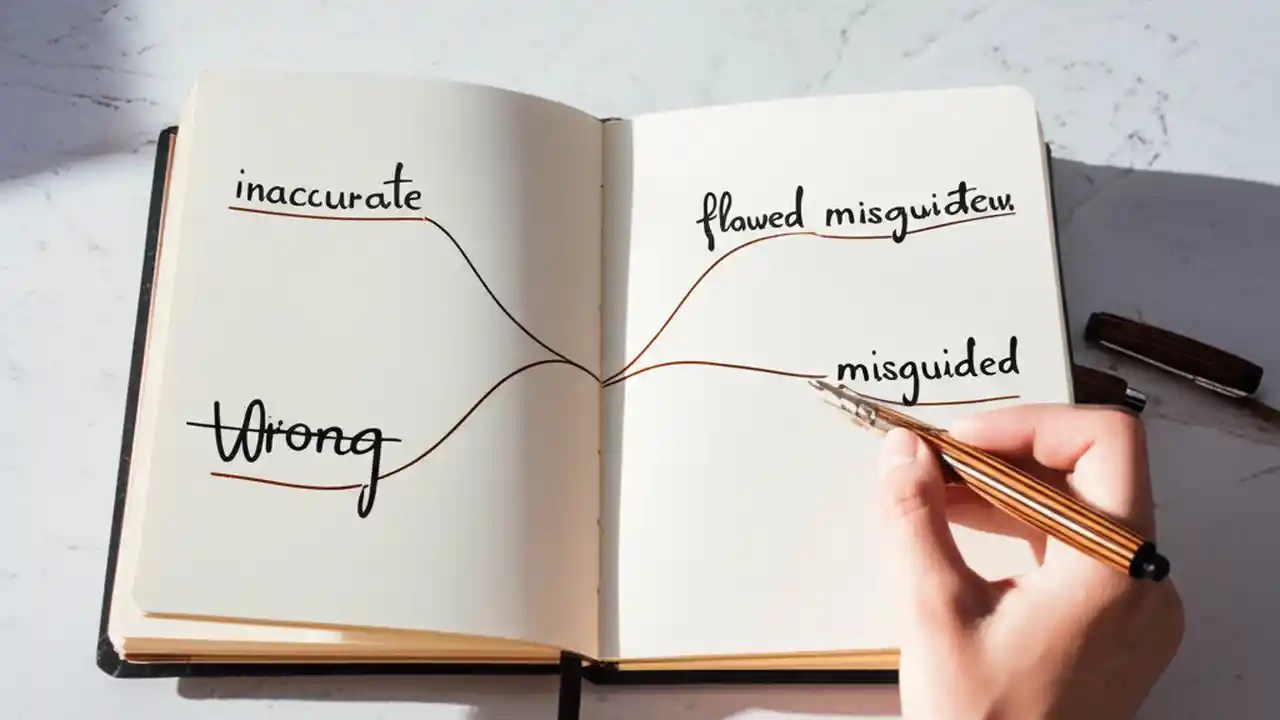 inaccurate
Wrong
flawed misguidew.
misguided